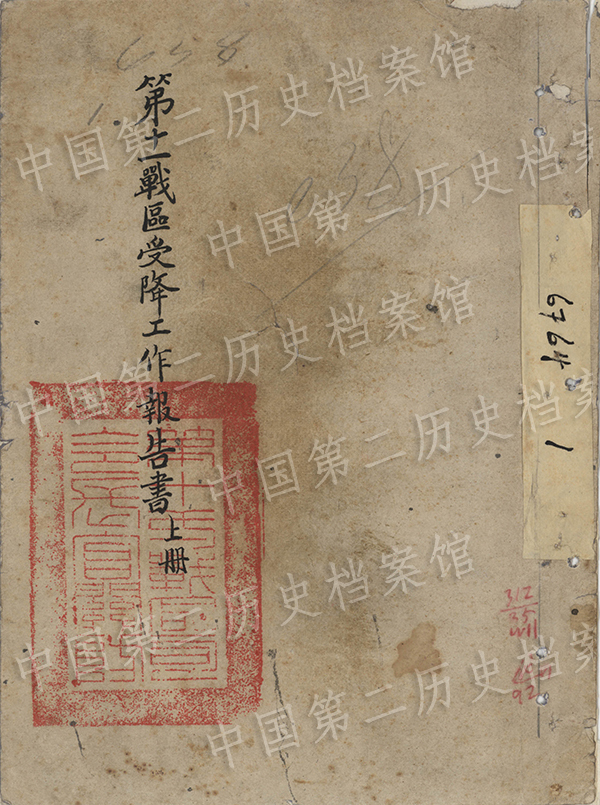 658
第十一戰區受降工作報告書 上册
658
6764 1
312
35
中国第二历史档案馆
中国第二历史档案馆
中国第二历史档案馆
中国第二历史档案馆
中国第二历史档案馆
中国第二历史档案馆